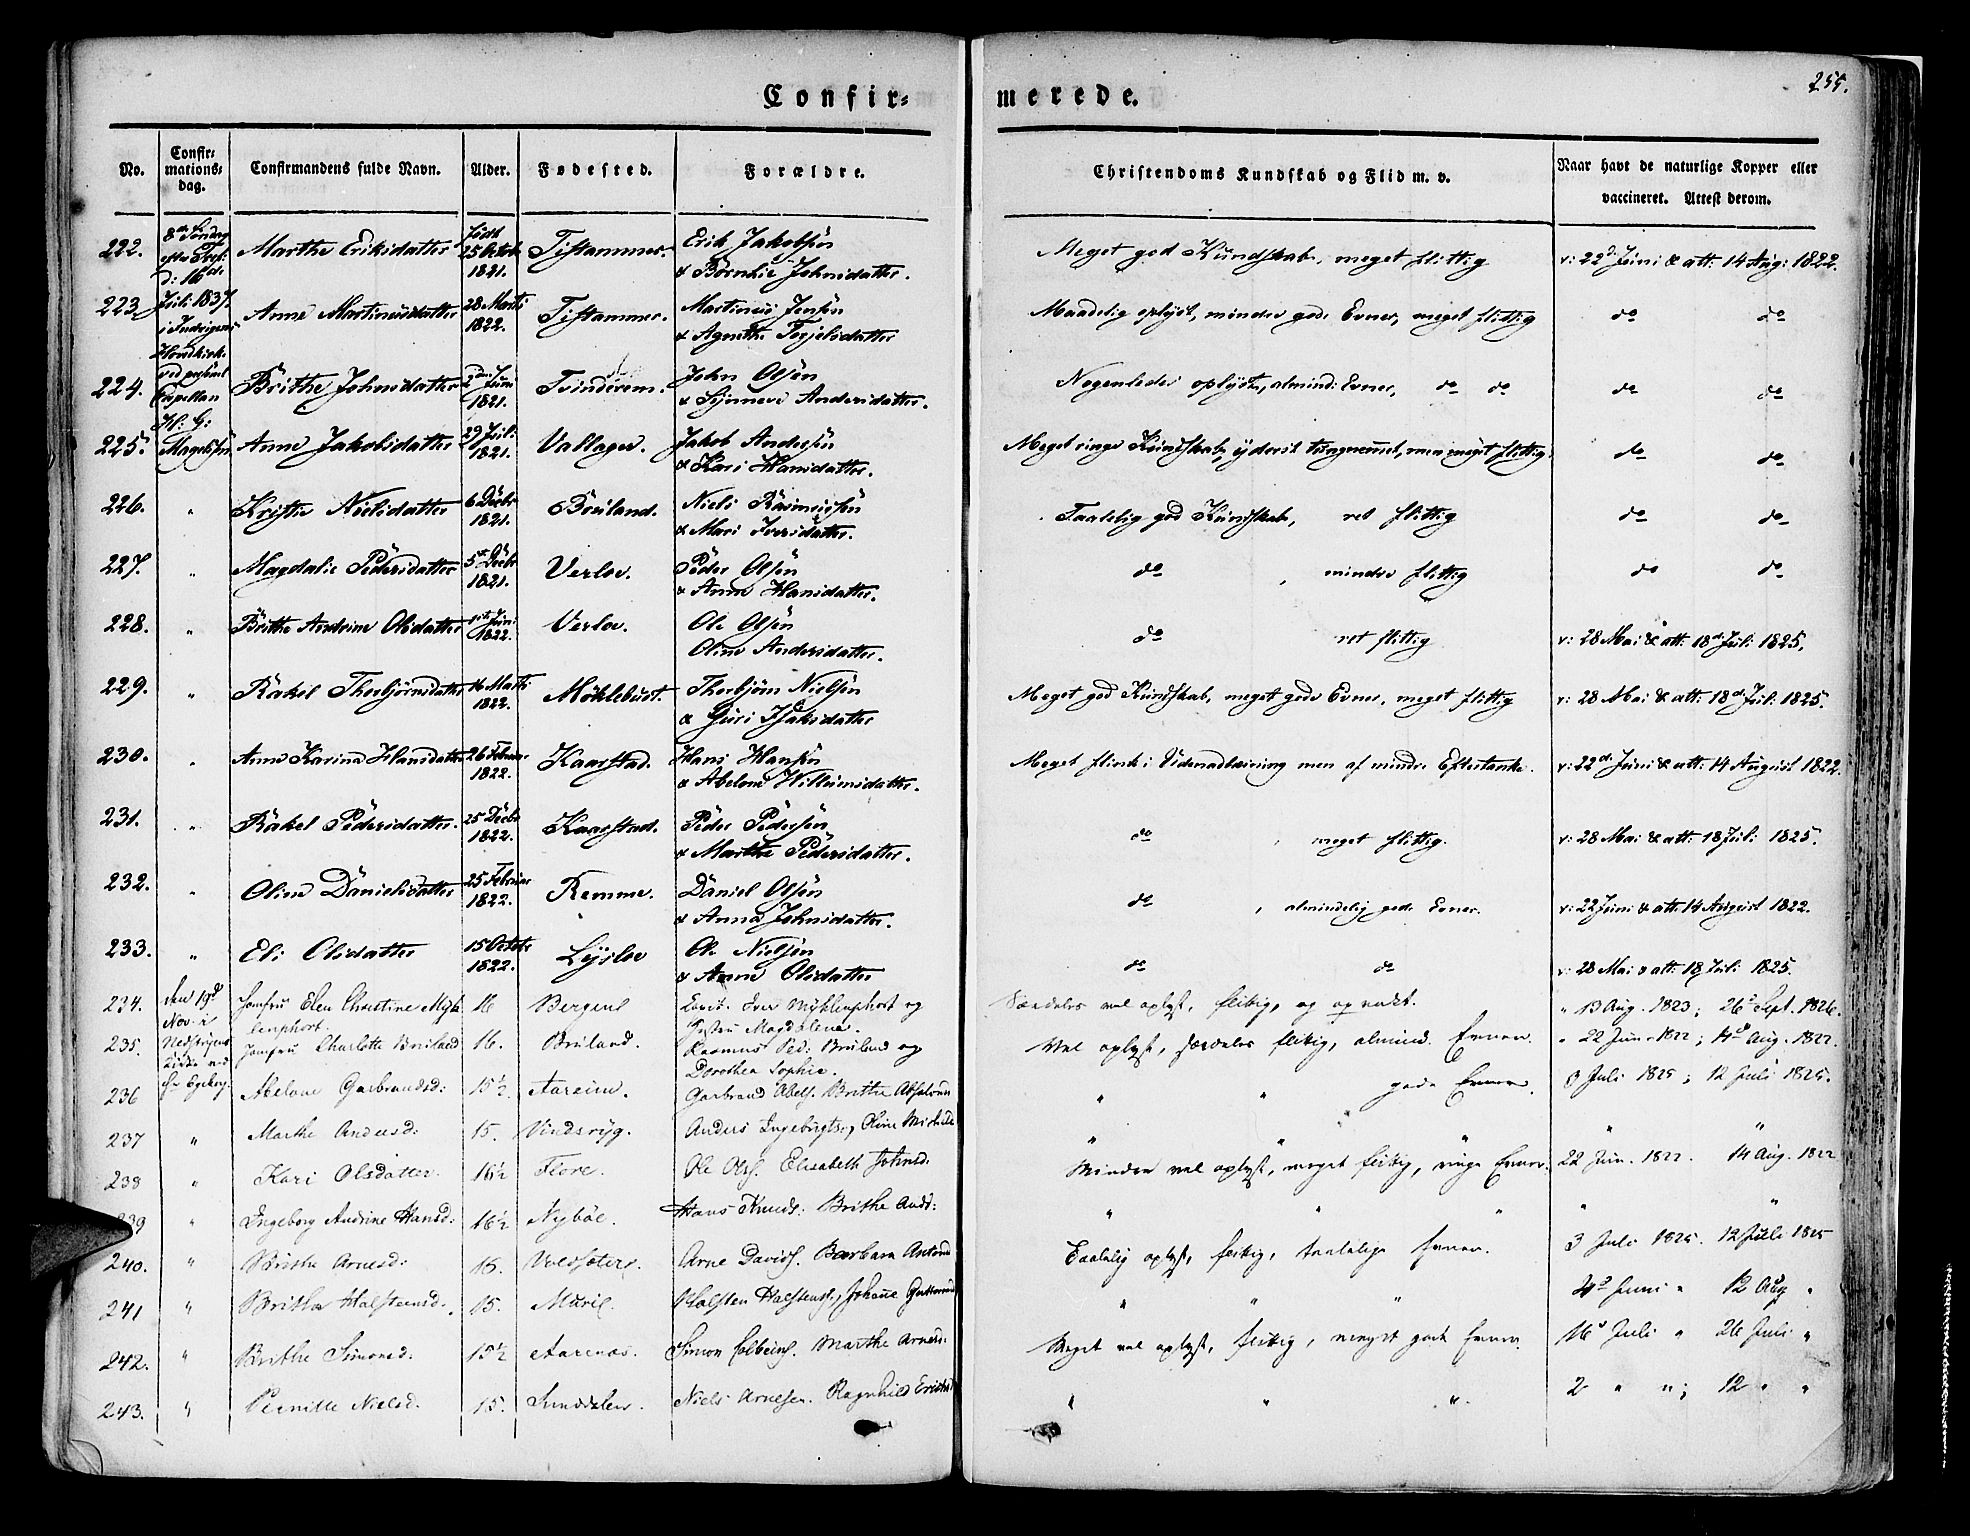 255.
Confir-merede.
No. Confir-mations-dag. Confirmandens fulde Navn. Alder. Fødested. Forældre. Christendoms Kundskab og Flid m. v. Naar havt de naturlige Kopper eller vaccineret. Attest derom.
222. 8de Søndag efter Trefl: d: 16de Marthe Eriksdatter født 25 Octobr 1821. Tistammer. Erik Jakobsön & Börnhie Johnsdatter. Meget god Kundskab, meget flittig v: 22d Juni & att: 14 Aug: 1822.
223. Juli 1837. i Indvigens Anne Martinusdatter 28 Marti 1822. Tistammer. Martinus Jensön & Agnethe Terjelsdatter Maadelig oplyst, mindre gode Evner, meget flittig do do
224. Hovedkirke ved personel Capellan Brithe Johnsdatter 2den Juni 1821. Tvinderem. John Olsön & Synneve Andersdatter. Nogenledes oplyst, almind: Evner, do do do do
225. H: G: Magelsen Anne Jakobsdatter 29 Juli: 1821. Vallager. Jakob Andersön & Kari Hansdatter. Meget ringe Kundskab, yderst tungnemmet, men meget flittig. do do
226. " Kristie Nielsdatter 6 Decbr 1821. Breiland. Niels Rasmussön & Mari Iversdatter. Taalelig god Kundskab, ret flittig do do
227. " Magdalie Pedersdatter 5te Decbr 1821. Verloe. Peder Olsön & Anne Hansdatter. do , mindre flittig do do
228. " Brithe Andrine Olsdatter 1ste Juni 1822. Verloe. Ole Olsön Oline Andersdatter. do ret flittig v: 28 Mai & att: 18de Juli: 1825.
229. " Rakel Thorbjörnsdatter 16 Marti 1822. Möklebust. Thorbjörn Nielsön & Guri Isaksdatter Meget god Kundskab, meget gode Evner, meget flittig v: 28 Mai & att: 18de Jul: 1825.
230. " Anne Karina Hansdatter 26 Februar 1822. Kaarstad. Hans Hansön & Abelone Willumsdatter. Meget flink i Udenadlæsning men af mindre Eftertanke. v: 22de Juni & att: 14 August 1822.
231. " Rakel Pedersdatter. 25 Decbr 1822. Kaarstad. Peder Pedersön & Marthe Pedersdatter. do , meget flittig. v: 28 Mai & att: 18 Juli: 1825.
232. " Oline Danielsdatter 25 Februar 1822. Remme. Daniel Olsön & Anna Johnsdatter. do , almindelig gode Evner. v: 22 Juni & att: 14 August 1822.
233. " Eli Olsdatter 15 Octobr 1822. Lysloe Ole Nielsön & Anne Olsdatter do do v: 28 Mai & att: 18 Juli: 1825.
234. den 19d Nov. i Jomfru Elen Christine Myklenphort. 16 Bergens Iver Myklenphort og Hustru Magdalena. Særdeles vel oplyst, fleitig, og opvakt. " 13 Aug. 1823; 26d Sept. 1826.
235. Nedstrijens Kirke ved Jomfru Charlotte Breiland 16. Breiland. Rasmus Ped: Breiland og Dorothea Sophie. Vel oplyst, særdeles fleitig, almind. Evner. " 22 Juni 1822; 14d Aug. 1822.
236 Hr Egeberg. Abelone Garbrandsd: 15½. Aareim. Garbrand Abels. Brithe Absalonsd " " gode Evner. 3 Juli 1825; 12 Juli 1825.
237 " Marthe Andersd: 15. Vindsryg. Anders Ingebrigts., Oline Michelsd " " " " "
238 " Kari Olsdatter. 16½ Flore. Ole Ols. Elisabeth Johnsd. Mindre vel oplyst, meget fleitig, ringe Evner. 22 Jun. 1822. 14 Aug. 1822
239 " Ingeborg Andrine Hansd: 16½ Nybøe. Hans Knuds: Brithe Ands: " " " " "
240. " Brithe Arnesd: 16. Voldsæter. Arne Davids. Barbara Antonsd Taalelig oplyst, fleitig, taalelige Evner. 3 Juli 1825. 12 Juli 1825
241 " Brithe Halsteensd. 15. Muril. Halsten Halstens., Johanne Guttormsd " " " 4d Juni " 12 Aug "
242. " Brithe Simonsd. 15½ Aarenæs. Simon Colbeins. Marthe Arnesd: Meget vel oplyst, fleitig, meget gode Evner. 16d Juli " 26 Juli "
243. " Pernille Nielsd. 15. Sunddalen. Niels Arnesen. Ragnhild Eriksd " " ". 2 " "; 12 " "